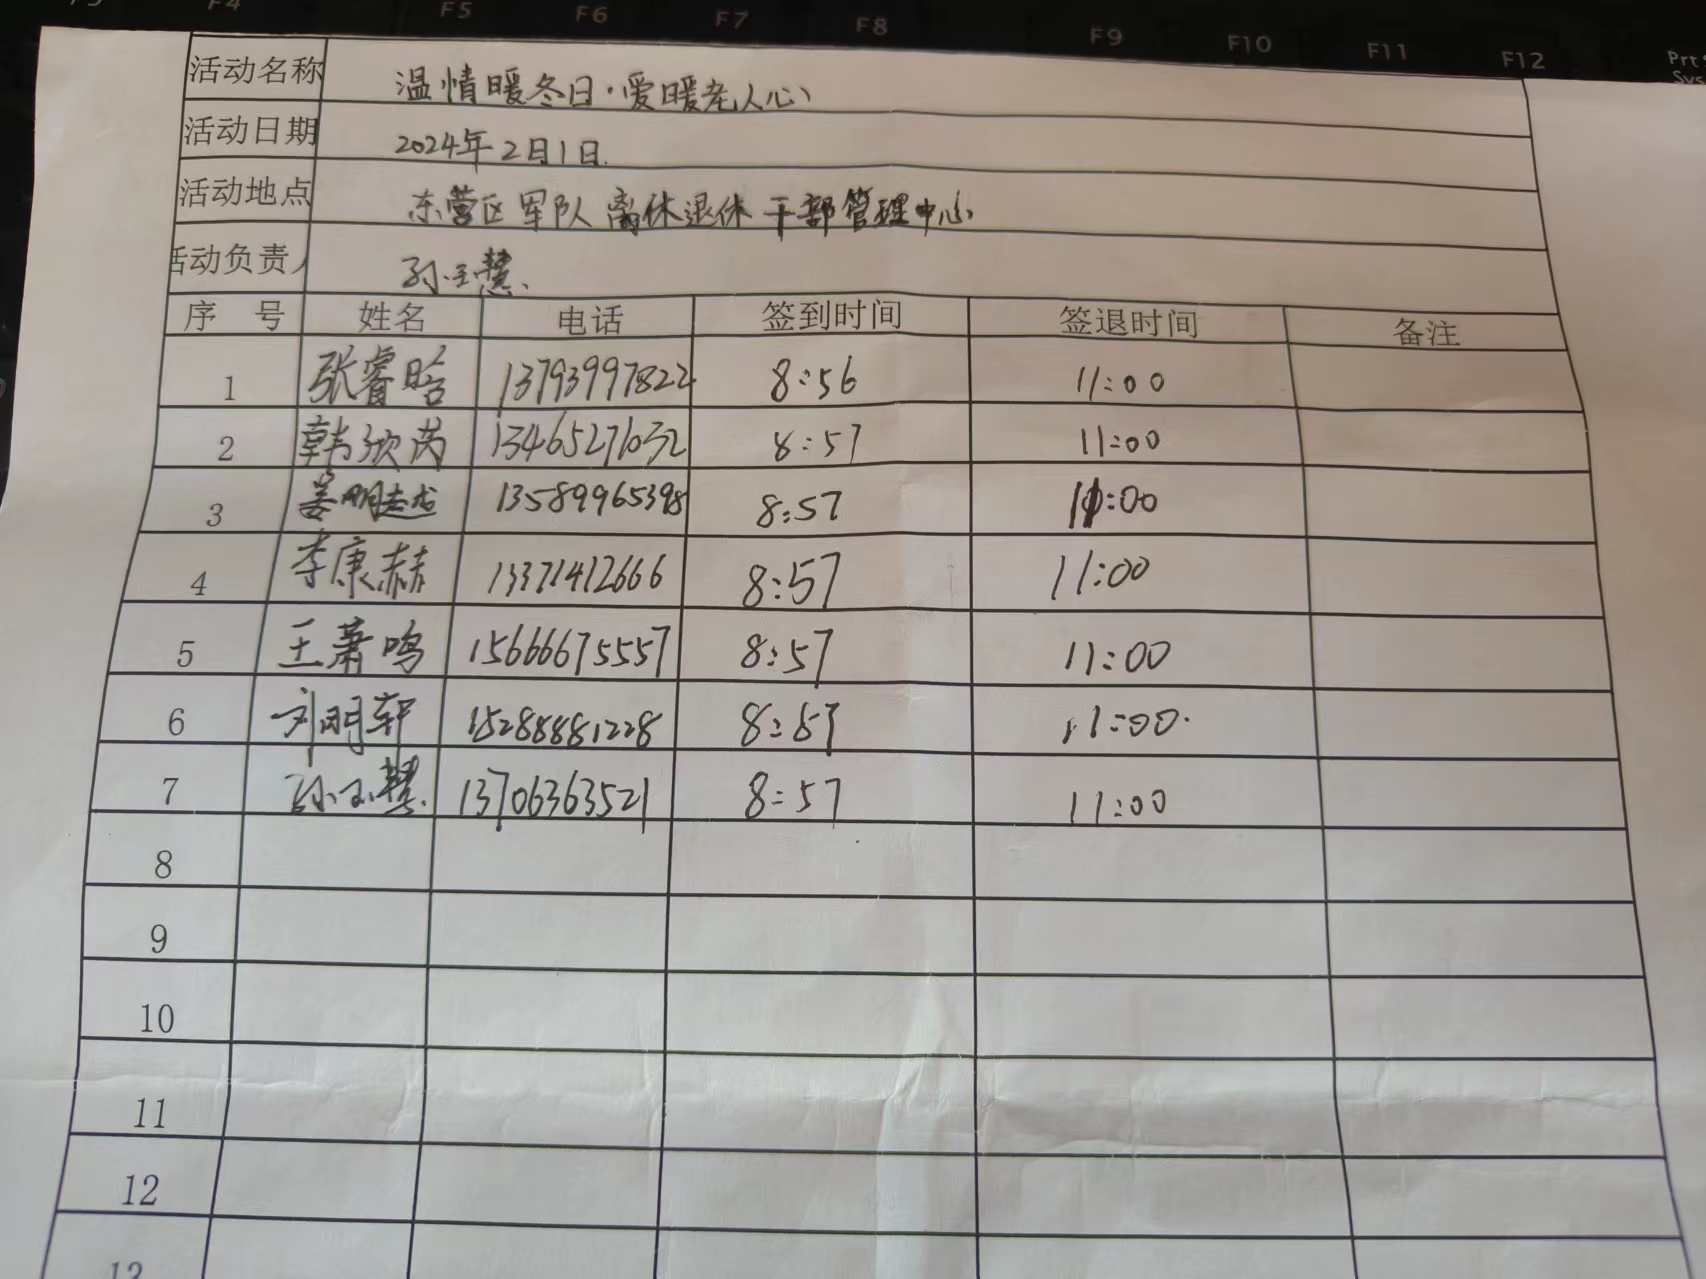 F4 F5 F6 F7 F8 F9 F10 F11 F12 Prt
Sys
活动名称 温情暖冬日·爱暖老人心
活动日期 2024年2月1日.
活动地点 东营区军队离休退休干部管理中心
活动负责人 孙玉慧
序号 姓名 电话 签到时间 签退时间 备注
1 张睿晗 13793997822 8:56 11:00
2 韩欣芮 13465271032 8:57 11:00
3 姜明 13589965398 8:57 11:00
4 李康赫 13371412666 8:57 11:00
5 王萧鸣 15666675557 8:57 11:00
6 刘明轩 15288881228 8:57 11:00
7 孙玉慧 13706363521 8:57 11:00
8
9
10
11
12
13